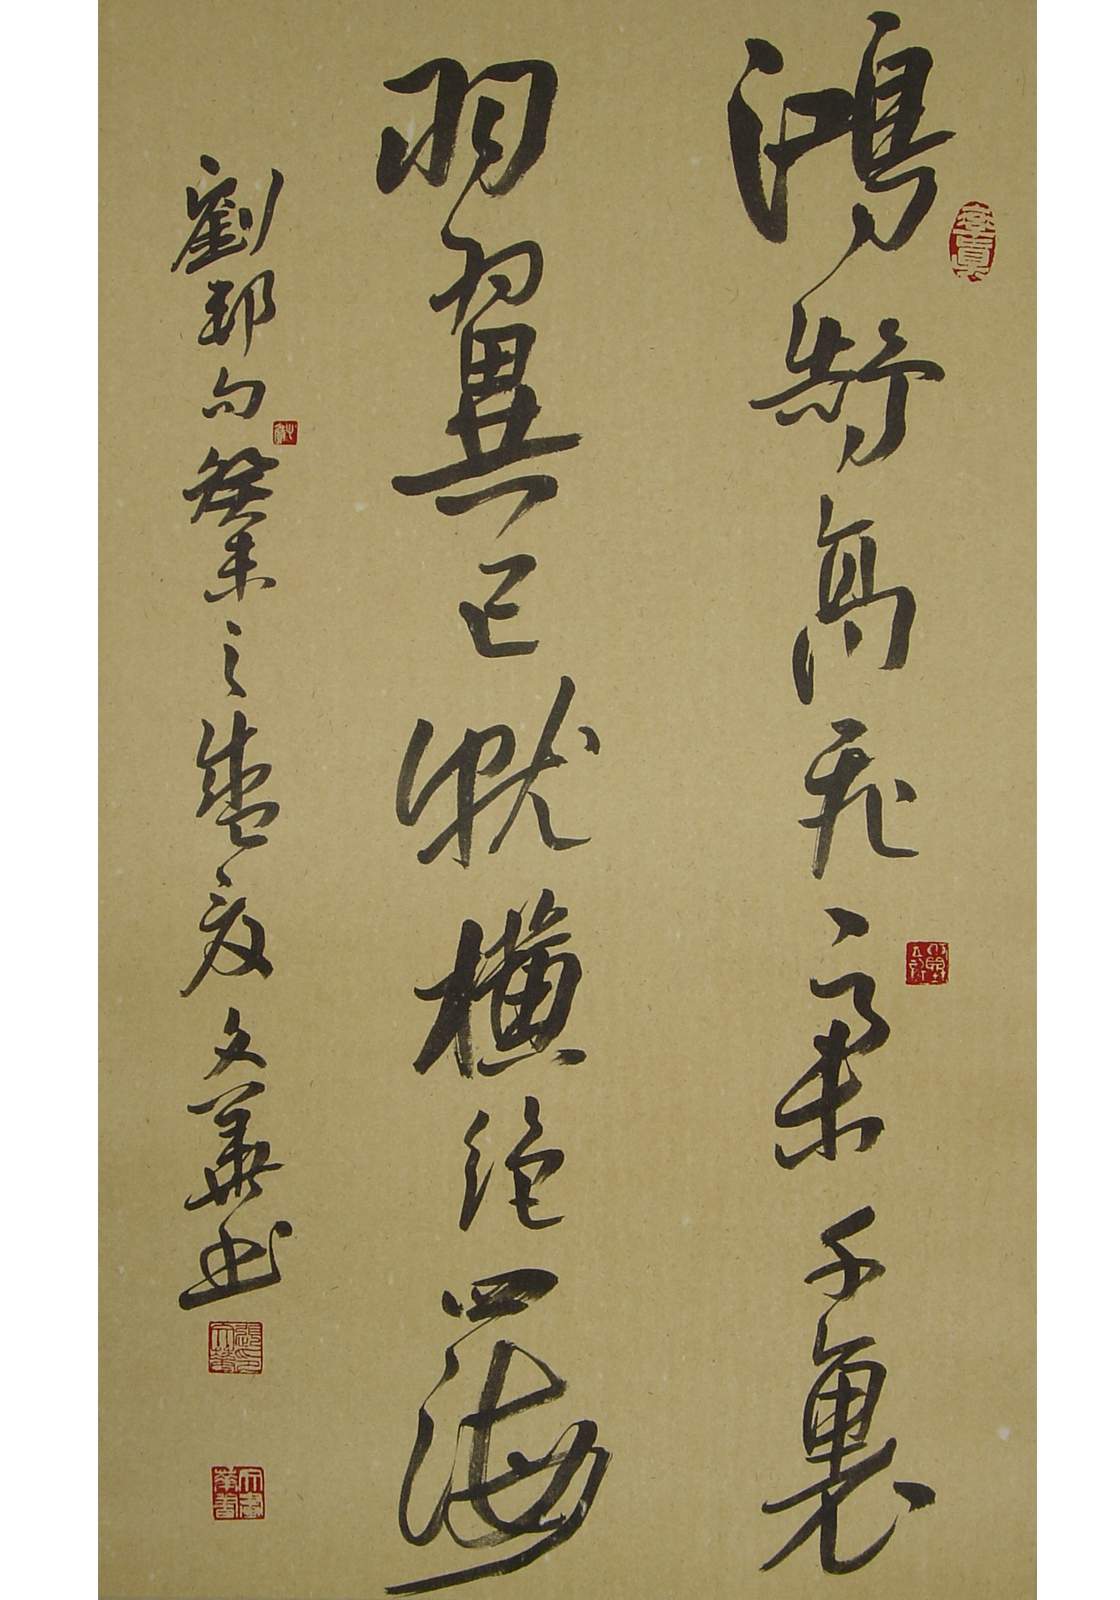 鴻鵠高飛一舉千裏
羽翼已就橫絕四海
劉邦句癸未之盛夏文華書